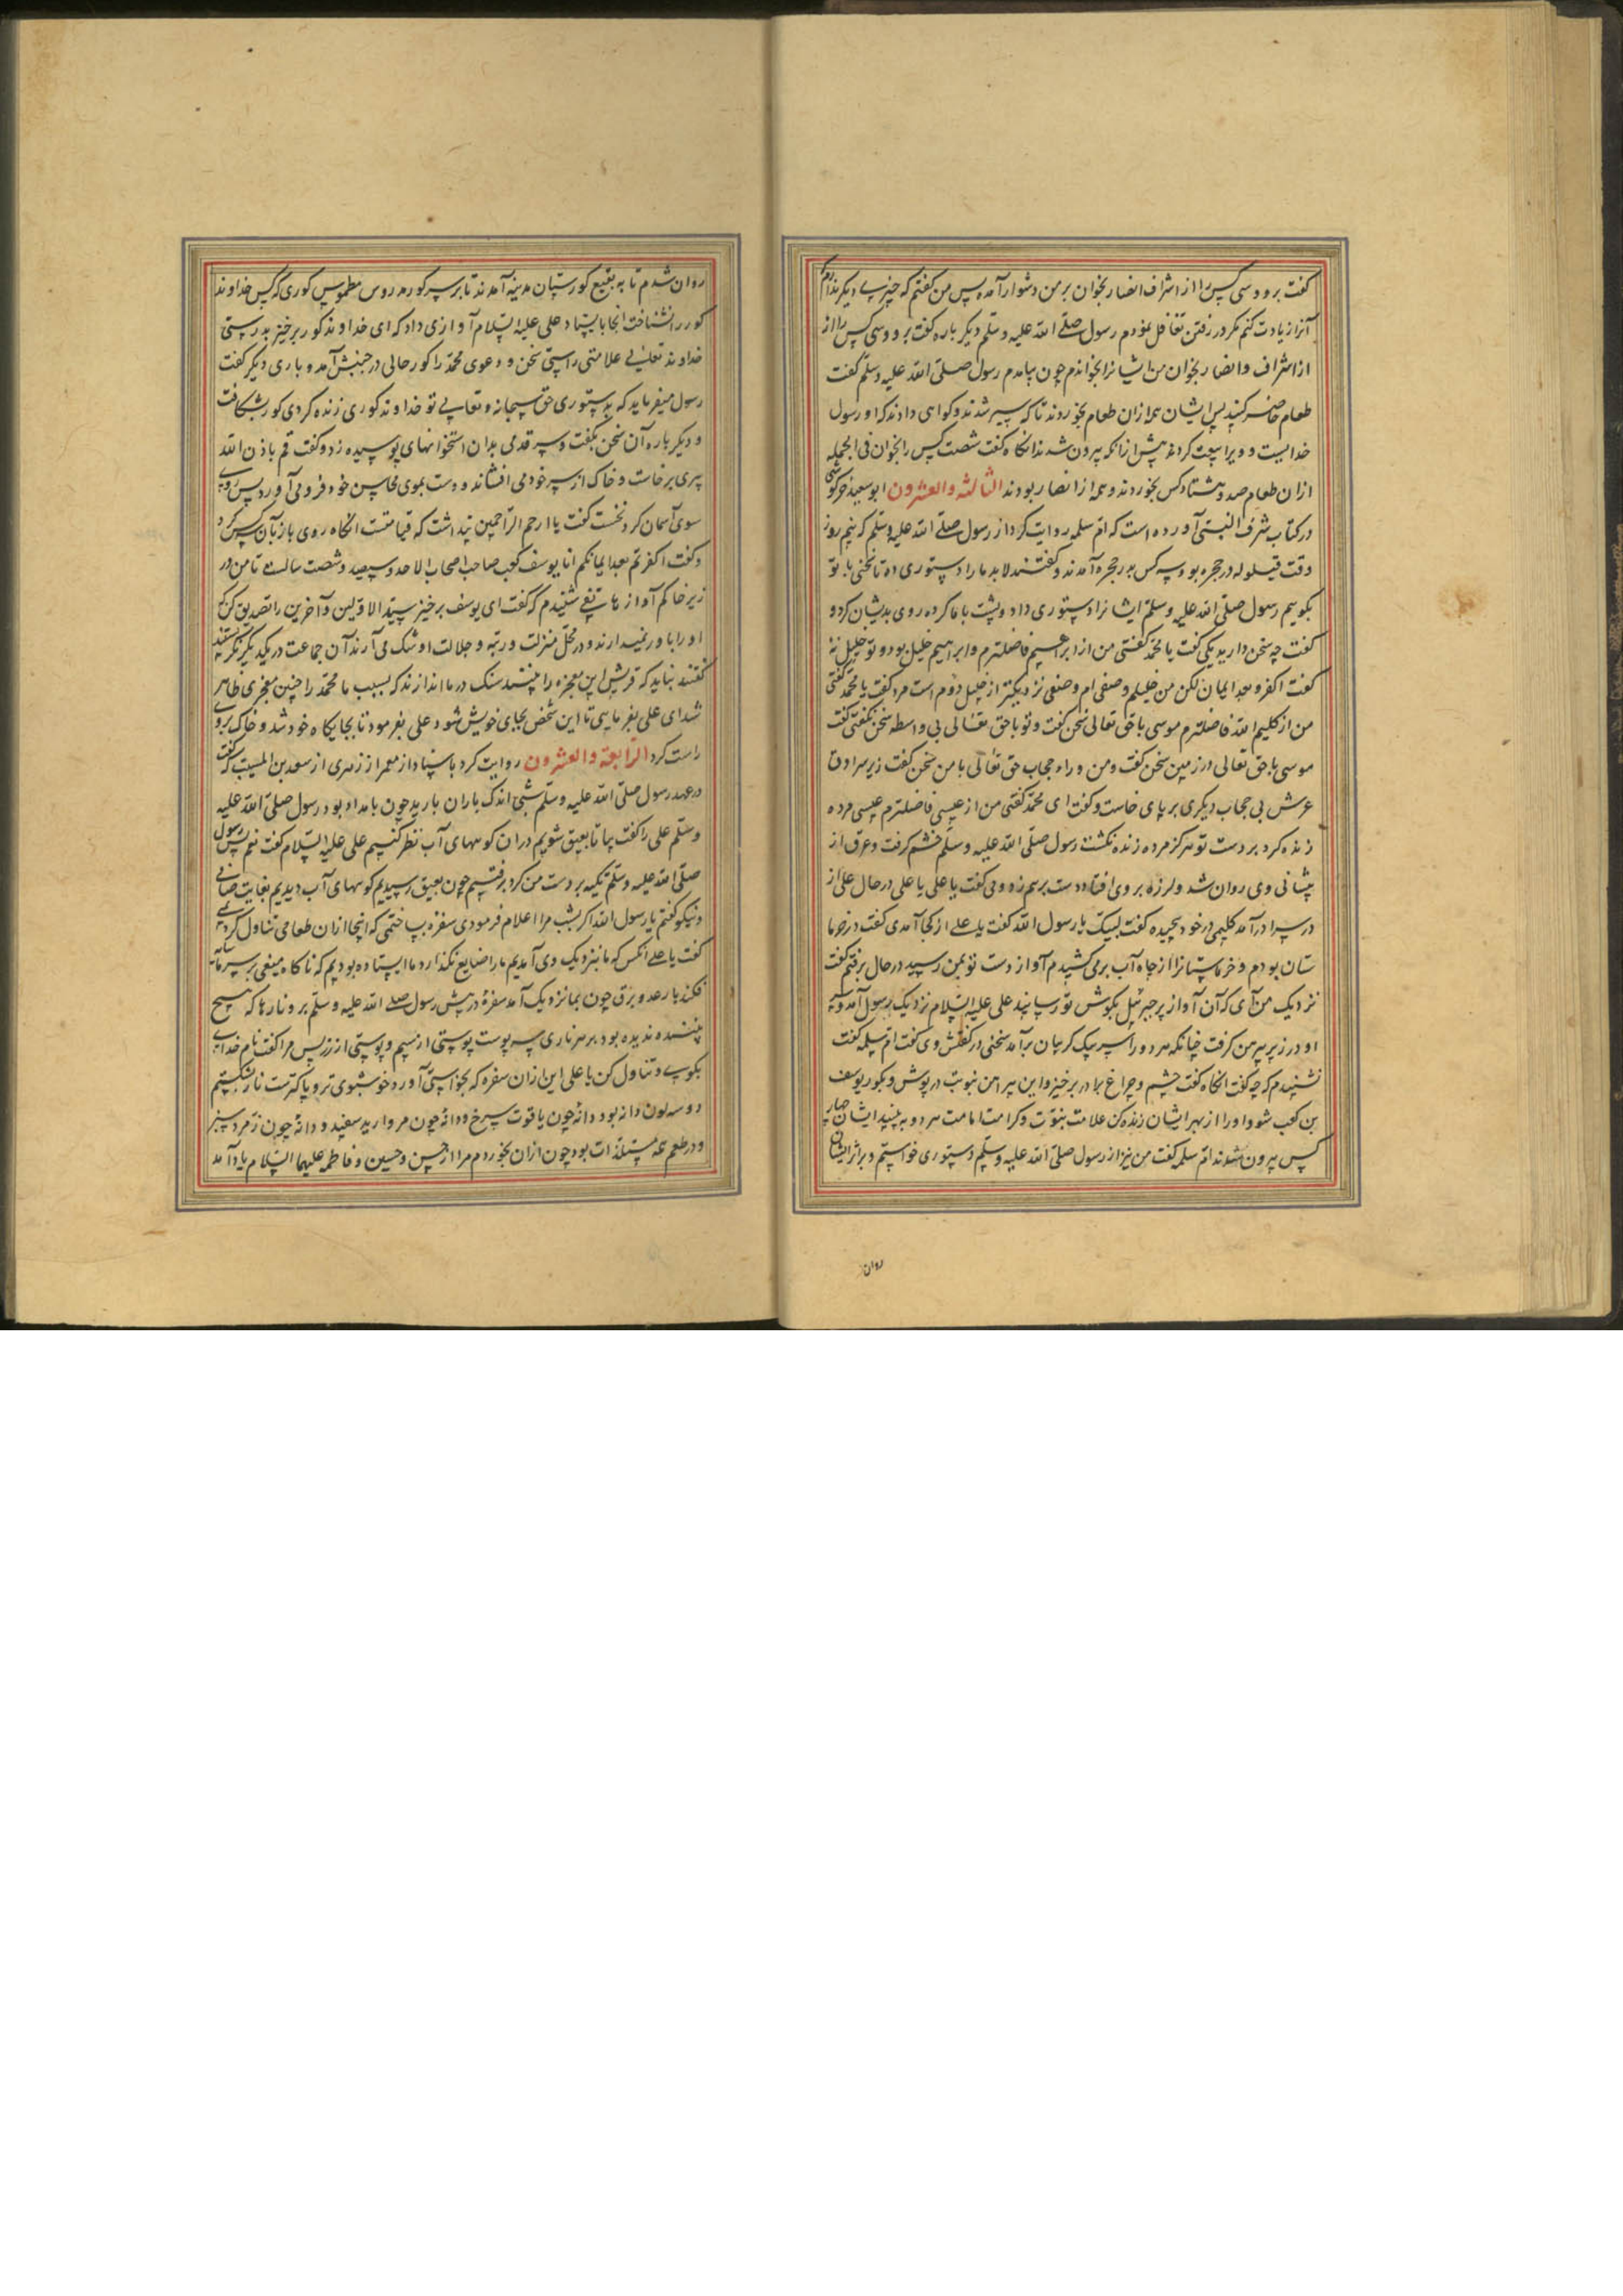 کفت برو و سی کس را از اشراف انصار بخوان بر من دشوار آمد پس من کفتم که چیزی دیکر ندارم
آنرا زیادت کنم مکر در رفتن تغافل نمودم رسول صلی الله علیه وسلم دیکر باره کفت برو و سی کس را از
از اشراف و انصار بخوان من ایشانرا بخواندم چون بیامدم رسول صلی الله علیه وسلم کفت
طعام حاضر کنید پس ایشان همه ازان طعام بخوردند تا که سیر شدند و کواهی دادند که او رسول
خداییست و ویرا بیعت کردند پیش ازانکه بیرون شدند انکاه کفت شصت کس را بخوان فی الجمله
ازان طعام صد و هشتاد کس بخوردند و همه از انصار بودند الثالثة والعشرون ابو سعید خرکوشی
در کتاب شرف النبی آورده است که ام سلمه روایت کرد از رسول صلی الله علیه وسلم که نیم روز
وقت قیلوله در حجره بود سه کس بدر حجره آمدند و کفتند لابد ما را دستوری ده تا سخنی با تو
بکوییم رسول صلی الله علیه وسلم ایشانرا دستوری داد و پشت باما کرده روی بدیشان کرد و
کفت چه سخن دارید یکی کفت یا محمد کفتی من از ابراهیم فاضلترم و ابراهیم خلیل بود و تو خلیل نه
کفت اکفر و بعد ایمان لکن من خلیلم و صفی ام و صفی نزدیکتر از خلیل دوم است مرد کفت یا محمد کفتی
من از کلیم الله فاضلترم موسی با حق تعالی سخن کفت و تو با حق تعالی بی واسطه سخن نکفتی کفت
موسی با حق تعالی در زمین سخن کفت و من وراء حجاب حق تعالی با من سخن کفت زیر سرادق
عرش بی حجاب دیکری بر پای خاست و کفت ای محمد کفتی من از عیسی فاضلترم عیسی مرده
زنده کرد بر دست تو هرکز مرده زنده نکشت رسول صلی الله علیه وسلم خشم کرفت و عرق از
پیشانی وی روان شد و لرزه بر وی افتاد و دست برهم زد و می کفت یا علی یا علی در حال علی از
در سرا درآمد کلیمی در خود پیچیده کفت لبیک یا رسول الله کفت یا علی از کجا آمدی کفت در خرما
ستان بودم و خرماستانرا از چاه آب برمی کشیدم آواز دست تو بمن رسید در حال برفتم کفت
نزدیک من آی که آن آواز بر جبرئیل بکوش تو رسانید علی علیه السلام نزدیک رسول آمد و سر
او در زیر پیرهن کرفت چنانکه هر دو را سر بیک کریبان برآمد سخنی در کفتش وی کفت ام سلمه کفت
نشنیدم که چه کفت انکاه کفت چشم و چراغ برادر برخیز و این پیراهن نبوت در پوش و بکور یوسف
بن کعب شو و او را از بهر ایشان زنده کن علامت نبوت و کرامت امامت هر دو به بینید ایشان چهار
کس بیرون شدند ام سلمه کفت من نیز از رسول صلی الله علیه وسلم دستوری خواستم و بر اثر ایشان
روان
روان شدم تا به بقیع کورستان مدینه آمدند تا بر سر کور مدروس مطموس کوری که کس خداوند
کور را نشناخت انجا بایستاد علی علیه السلام آوازی داد که ای خداوند کور برخیز بدرستی
خداوند تعالی علامتی راستی سخن و دعوی محمد را کور حالی در جنبش آمد و باری دیکر کفت
رسول میفرماید که بدستوری حق سبحانه و تعالی تو خداوند کوری زنده کردی کور بشکافت
و دیکر باره آن سخن بکفت و سر قدمی بدان استخوانهای پوسیده زد و کفت قم باذن الله
پیری برخاست و خاک از سر خود می افشاند و دست بموی محاسن خود فرومی آورد پس روی
سوی آسمان کرد نخست کفت یا ارحم الراحمین پنداشت که قیامتست انکاه روی بازبان کس کرد
و کفت اکفرتم بعد ایمانکم انا یوسف کعب صاحب اصحاب الاخدود سیصد و شصت سالست تا من در
زیر خاکم آواز هاتفی شنیدم که کفت ای یوسف برخیز سید الاولین و آخرین را تصدیق کن که
او را باور نمیدارند و در محل منزلت و رتبه و جلالت او شک می آرند آن جماعت در یکدیکر نکریستند
کفتند نباید که قریش این معجزه را ببینند سنک در ما اندازند که بسبب ما محمد را چنین معجزی ظاهر
شد ای علی بفرمایی تا این شخص بجای خویش شود علی بفرمود تا بجایکاه خود شد و خاک بر وی
راست کرد الرابعة والعشرون روایت کرد باسناد از معمر از زهری از سعید بن المسیب که کفت
در عهد رسول صلی الله علیه وسلم شبی اندک باران بارید چون بامداد بود رسول صلی الله علیه
وسلم علی را کفت بیا تا بعقیق شویم دران کوههای آب نظر کنیم علی علیه السلام کفت نعم رسول
صلی الله علیه وسلم تکیه بر دست من کرد برفتیم چون بعقیق رسیدیم کوههای آب دیدیم بغایت صافی
و نیکو کفتم یا رسول الله اکر بشب مرا اعلام فرمودی سفره بساختمی که اینجا ازان طعامی تناول کردیمی
کفت یا علی آنکس که ما بنزدیک وی آمدیم ما را ضایع نکذارد ما ایستاده بودیم که ناکاه میغی بر سر ما سایه
فکند با رعد و برق چون بما نزدیک آمد سفره در پیش رسول صلی الله علیه وسلم بر و نارها که هیچ
بیننده ندیده بود بر هر ناری سه پوست پوستی از سیم و پوستی از زر پس مرا کفت نام خدای
بکوی و تناول کن یا علی این ازان سفره که بخواستی آورد و خوشبوی تر و پاکترست نار بشکستیم
دو سه لون دانه بود دانه چون یاقوت سرخ و دانه چون مروارید سفید و دانه چون زمرد سبز
و در طعم همه مستلذات بود چون ازان بخوردم مرا از حسن و حسین و فاطمه علیهما السلام یاد آمد